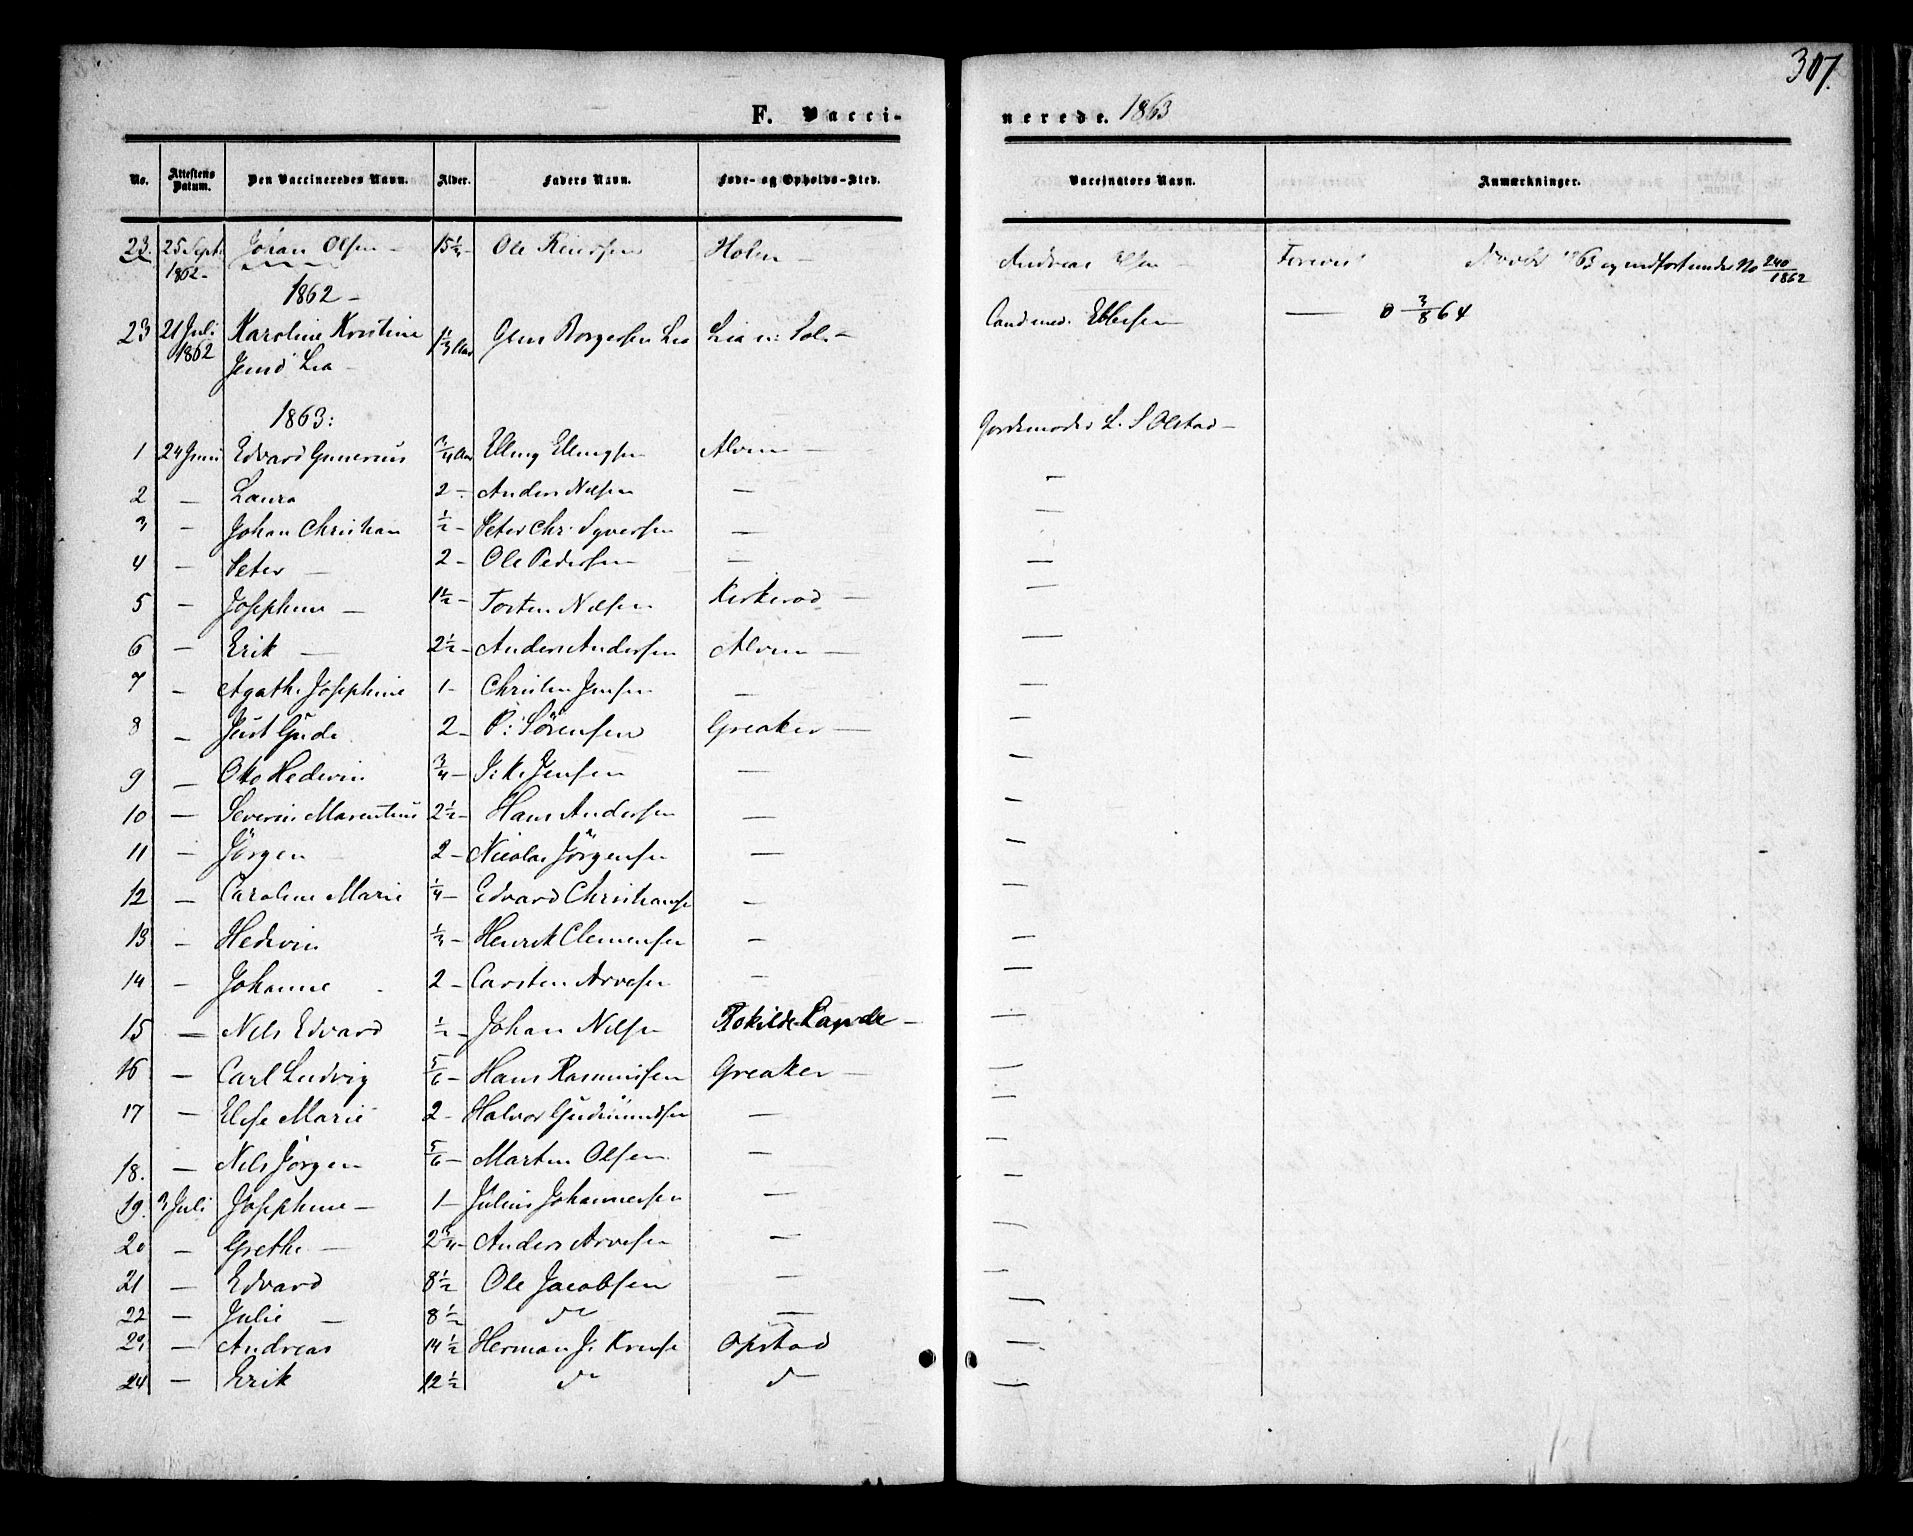 307.
F. Vacci-
nerede. 1863
No. Attestens Datum. Den Vaccineredes Navn. Alder. Faders Navn. Føde- og Opholds-Sted. Vaccinators Navn. Anmærkninger.
23. 25 Sept. 1862 - Johan Olsen - 15 1/4 - Ole Holen - Andreas No 240/1862
1862 -
23 21 Juli 1862 Karoline Kristine Lia - 1 1/3 Aar Borgersen Lia Lia Cand. med. Ebbesen - 3/8 64
1863:
1 24 Juni Edvard Gunerius 3/4 Aar Elling Ellingsen Alven - Jordemoder L. S Olstad -
2 - Laura 2 - Anders Nilsen - -
3 - Johan Christian 1/2 - Peter Chr. Syversen - -
4 - Peter - 2 - Ole Pedersen - -
5 - Josephine - 1 1/2 - Torsten Nilsen Kirkerød - -
6 - Erik - 2 1/2 - Anders Andersen Alven - -
7 - Agathe Josephine 1 - Christen Jensen - -
8 - Just Gude 2 - P: Sörensen Greaker - -
9 - Otto Hedevin 3/4 - Jensen - -
10 - Severin Marentius 2 1/2 - Hans Andersen - -
11 - Jörgen 2 - Nicolai Jörgensen - -
12 - Caroline Marie 1/4 - Edvard Christiansen - -
13 - Hedevin 1/3 - Henrik Clemensen - -
14 - Johanne 2 - Carsten Arvesen - -
15 - Nils Edvard 1/2 - Johan Nilsen Rokilde - -
16 - Carl Ludvig 5/6 - Hans Rasmussen Greaker - -
17 - Elise Marie 2 - Halvor Gudmundsen - -
18. - Nils Jörgen 5/6 - Martin Olsen - -
19. 3 Juli Josephine - 1 - Julius Johannesen - -
20 - Grethe - 2 3/4 - Anders Arvesen - -
21 - Edvard 8 1/2 Ole Jacobsen - -
22 - Julie - 8 1/2 do - -
23 - Andreas 14 1/2 Herman J. Kruse Opstad -
24 - Erik 12 1/2 do do -